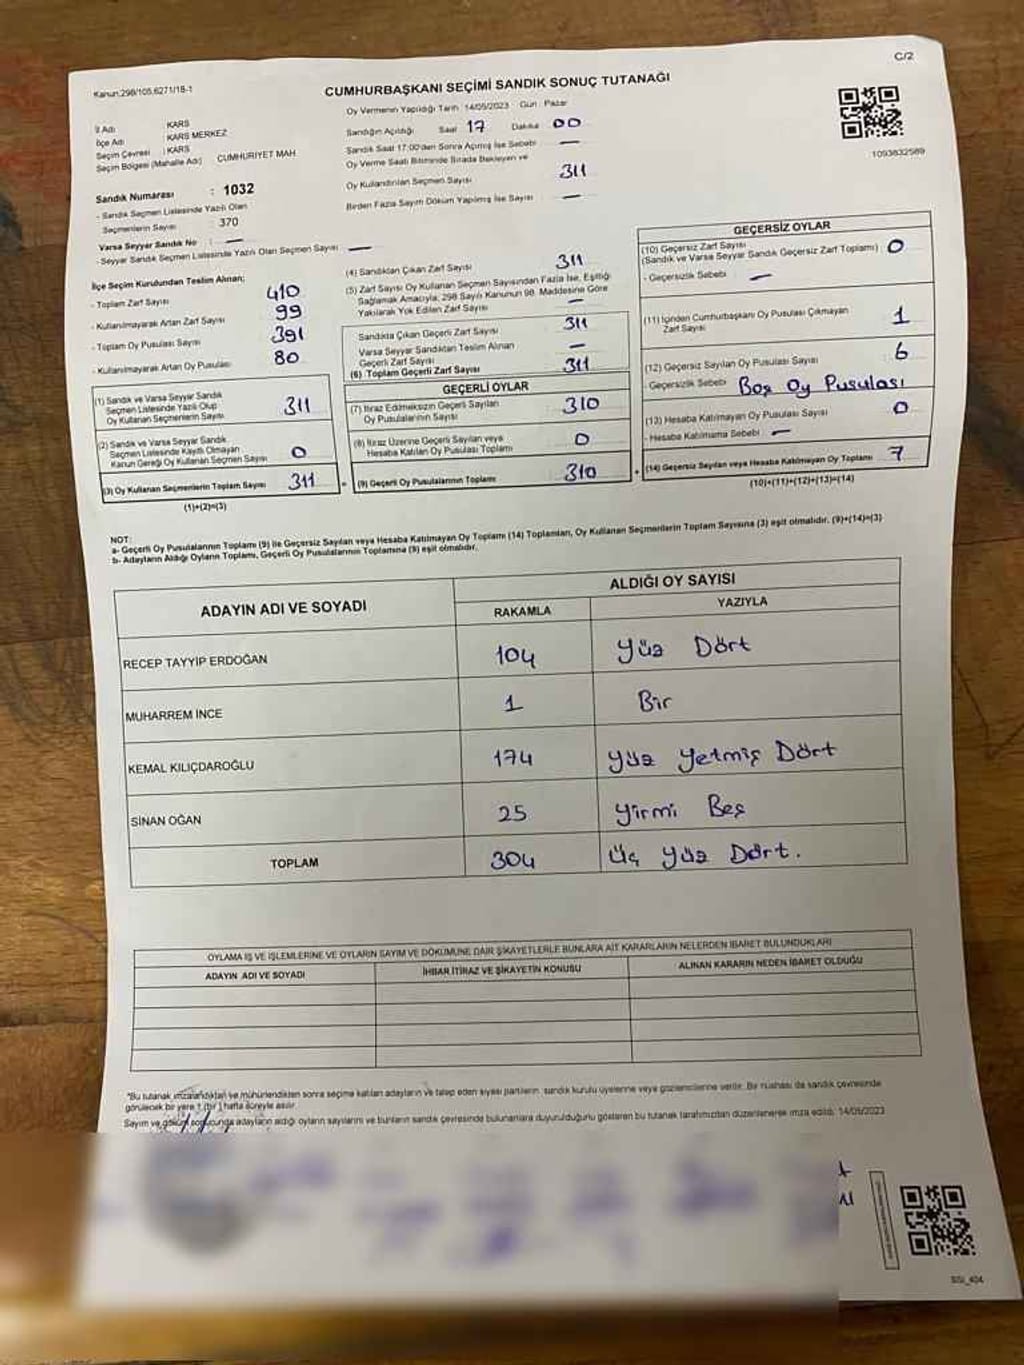 C/2
Kanun:298/105,6271/18-1
CUMHURBAŞKANI SEÇİMİ SANDIK SONUÇ TUTANAĞI
Oy Vermenin Yapıldığı Tarih 14/05/2023 Gün : Pazar
İl Adı KARS
İlçe Adı KARS MERKEZ
Seçim Çevresi : KARS
Seçim Bölgesi (Mahalle Adı) CUMHURİYET MAH
Sandığın Açıldığı Saat 17 Dakika 00
Sandık Saat 17:00'den Sonra Açılmış İse Sebebi —
Oy Verme Saati Bitiminde Sırada Bekleyen ve
Oy Kullandırılan Seçmen Sayısı 311
Birden Fazla Sayım Döküm Yapılmış İse Sayısı —
1093832589
Sandık Numarası : 1032
- Sandık Seçmen Listesinde Yazılı Olan
Seçmenlerin Sayısı : 370
Varsa Seyyar Sandık No : —
- Seyyar Sandık Seçmen Listesinde Yazılı Olan Seçmen Sayısı —
İlçe Seçim Kurulundan Teslim Alınan;
- Toplam Zarf Sayısı 410
- Kullanılmayarak Artan Zarf Sayısı 99
- Toplam Oy Pusulası Sayısı 391
- Kullanılmayarak Artan Oy Pusulası 80
(1) Sandık ve Varsa Seyyar Sandık
Seçmen Listesinde Yazılı Olup
Oy Kullanan Seçmenlerin Sayısı 311
(2) Sandık ve Varsa Seyyar Sandık
Seçmen Listesinde Kayıtlı Olmayan
Kanun Gereği Oy Kullanan Seçmen Sayısı 0
(3) Oy Kullanan Seçmenlerin Toplam Sayısı 311
(1)+(2)=(3)
(4) Sandıktan Çıkan Zarf Sayısı 311
(5) Zarf Sayısı Oy Kullanan Seçmen Sayısından Fazla İse, Eşitliği
Sağlamak Amacıyla, 298 Sayılı Kanunun 98. Maddesine Göre
Yakılarak Yok Edilen Zarf Sayısı —
Sandıkta Çıkan Geçerli Zarf Sayısı 311
Varsa Seyyar Sandıktan Teslim Alınan
Geçerli Zarf Sayısı —
(6) Toplam Geçerli Zarf Sayısı 311
GEÇERLİ OYLAR
(7) İtiraz Edilmeksizin Geçerli Sayılan
Oy Pusulalarının Sayısı 310
(8) İtiraz Üzerine Geçerli Sayılan veya
Hesaba Katılan Oy Pusulası Toplamı 0
= (9) Geçerli Oy Pusulalarının Toplamı 310
GEÇERSİZ OYLAR
(10) Geçersiz Zarf Sayısı
(Sandık ve Varsa Seyyar Sandık Geçersiz Zarf Toplamı) : 0
- Geçersizlik Sebebi : —
(11) İçinden Cumhurbaşkanı Oy Pusulası Çıkmayan
Zarf Sayısı 1
(12) Geçersiz Sayılan Oy Pusulası Sayısı 6
- Geçersizlik Sebebi : Boş Oy Pusulası
(13) Hesaba Katılmayan Oy Pusulası Sayısı 0
- Hesaba Katılmama Sebebi : —
+ (14) Geçersiz Sayılan veya Hesaba Katılmayan Oy Toplamı 7
(10)+(11)+(12)+(13)=(14)
NOT:
a- Geçerli Oy Pusulalarının Toplamı (9) ile Geçersiz Sayılan veya Hesaba Katılmayan Oy Toplamı (14) Toplamları, Oy Kullanan Seçmenlerin Toplam Sayısına (3) eşit olmalıdır. (9)+(14)=(3)
b- Adayların Aldığı Oyların Toplamı, Geçerli Oy Pusulalarının Toplamına (9) eşit olmalıdır.
ADAYIN ADI VE SOYADI
ALDIĞI OY SAYISI
RAKAMLA YAZIYLA
RECEP TAYYİP ERDOĞAN 104 Yüz Dört
MUHARREM İNCE 1 Bir
KEMAL KILIÇDAROĞLU 174 Yüz Yetmiş Dört
SİNAN OĞAN 25 Yirmi Beş
TOPLAM 304 Üç Yüz Dört.
OYLAMA İŞ VE İŞLEMLERİNE VE OYLARIN SAYIM VE DÖKÜMÜNE DAİR ŞİKAYETLERLE BUNLARA AİT KARARLARIN NELERDEN İBARET BULUNDUKLARI
ADAYIN ADI VE SOYADI İHBAR İTİRAZ VE ŞİKAYETİN KONUSU ALINAN KARARIN NEDEN İBARET OLDUĞU
*Bu tutanak imzalandıktan ve mühürlendikten sonra seçime katılan adayların ve talep eden siyasi partilerin sandık kurulu üyelerine veya gözlemcilerine verilir. Bir nüshası da sandık çevresinde
görülecek bir yere 1 (bir ) hafta süreyle asılır.
Sayım ve döküm sonucunda adayların aldığı oyların sayılarını ve bunların sandık çevresinde bulunanlara duyurulduğunu gösteren bu tutanak tarafımızdan düzenlenerek imza edildi. 14/05/2023